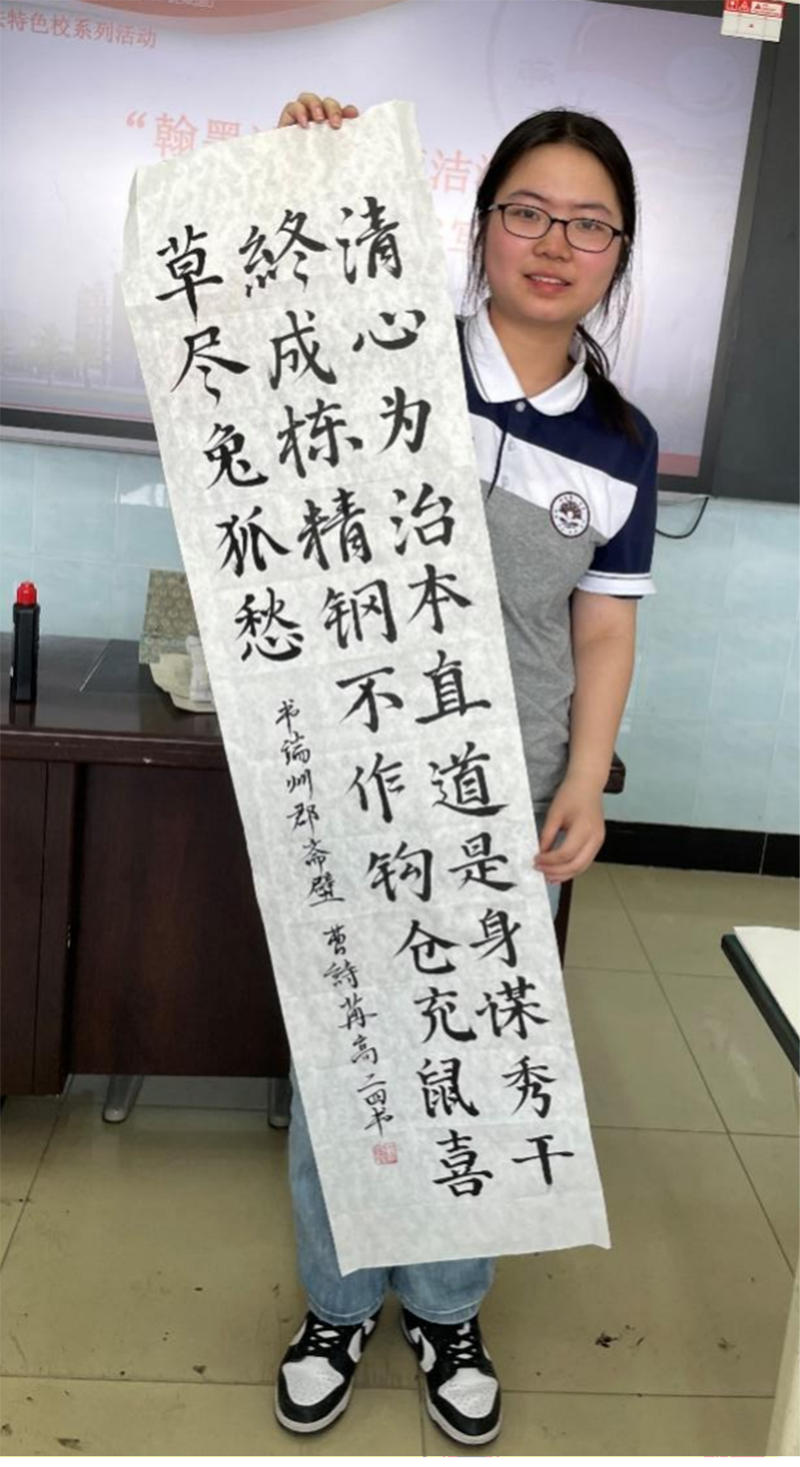 特色校系列活动
“翰墨
洁
清心为治本直道是身谋秀干
終成栋精钢不作钩仓充鼠喜
草尽兔狐愁
书端州郡斋壁 曹詩苒高二四书